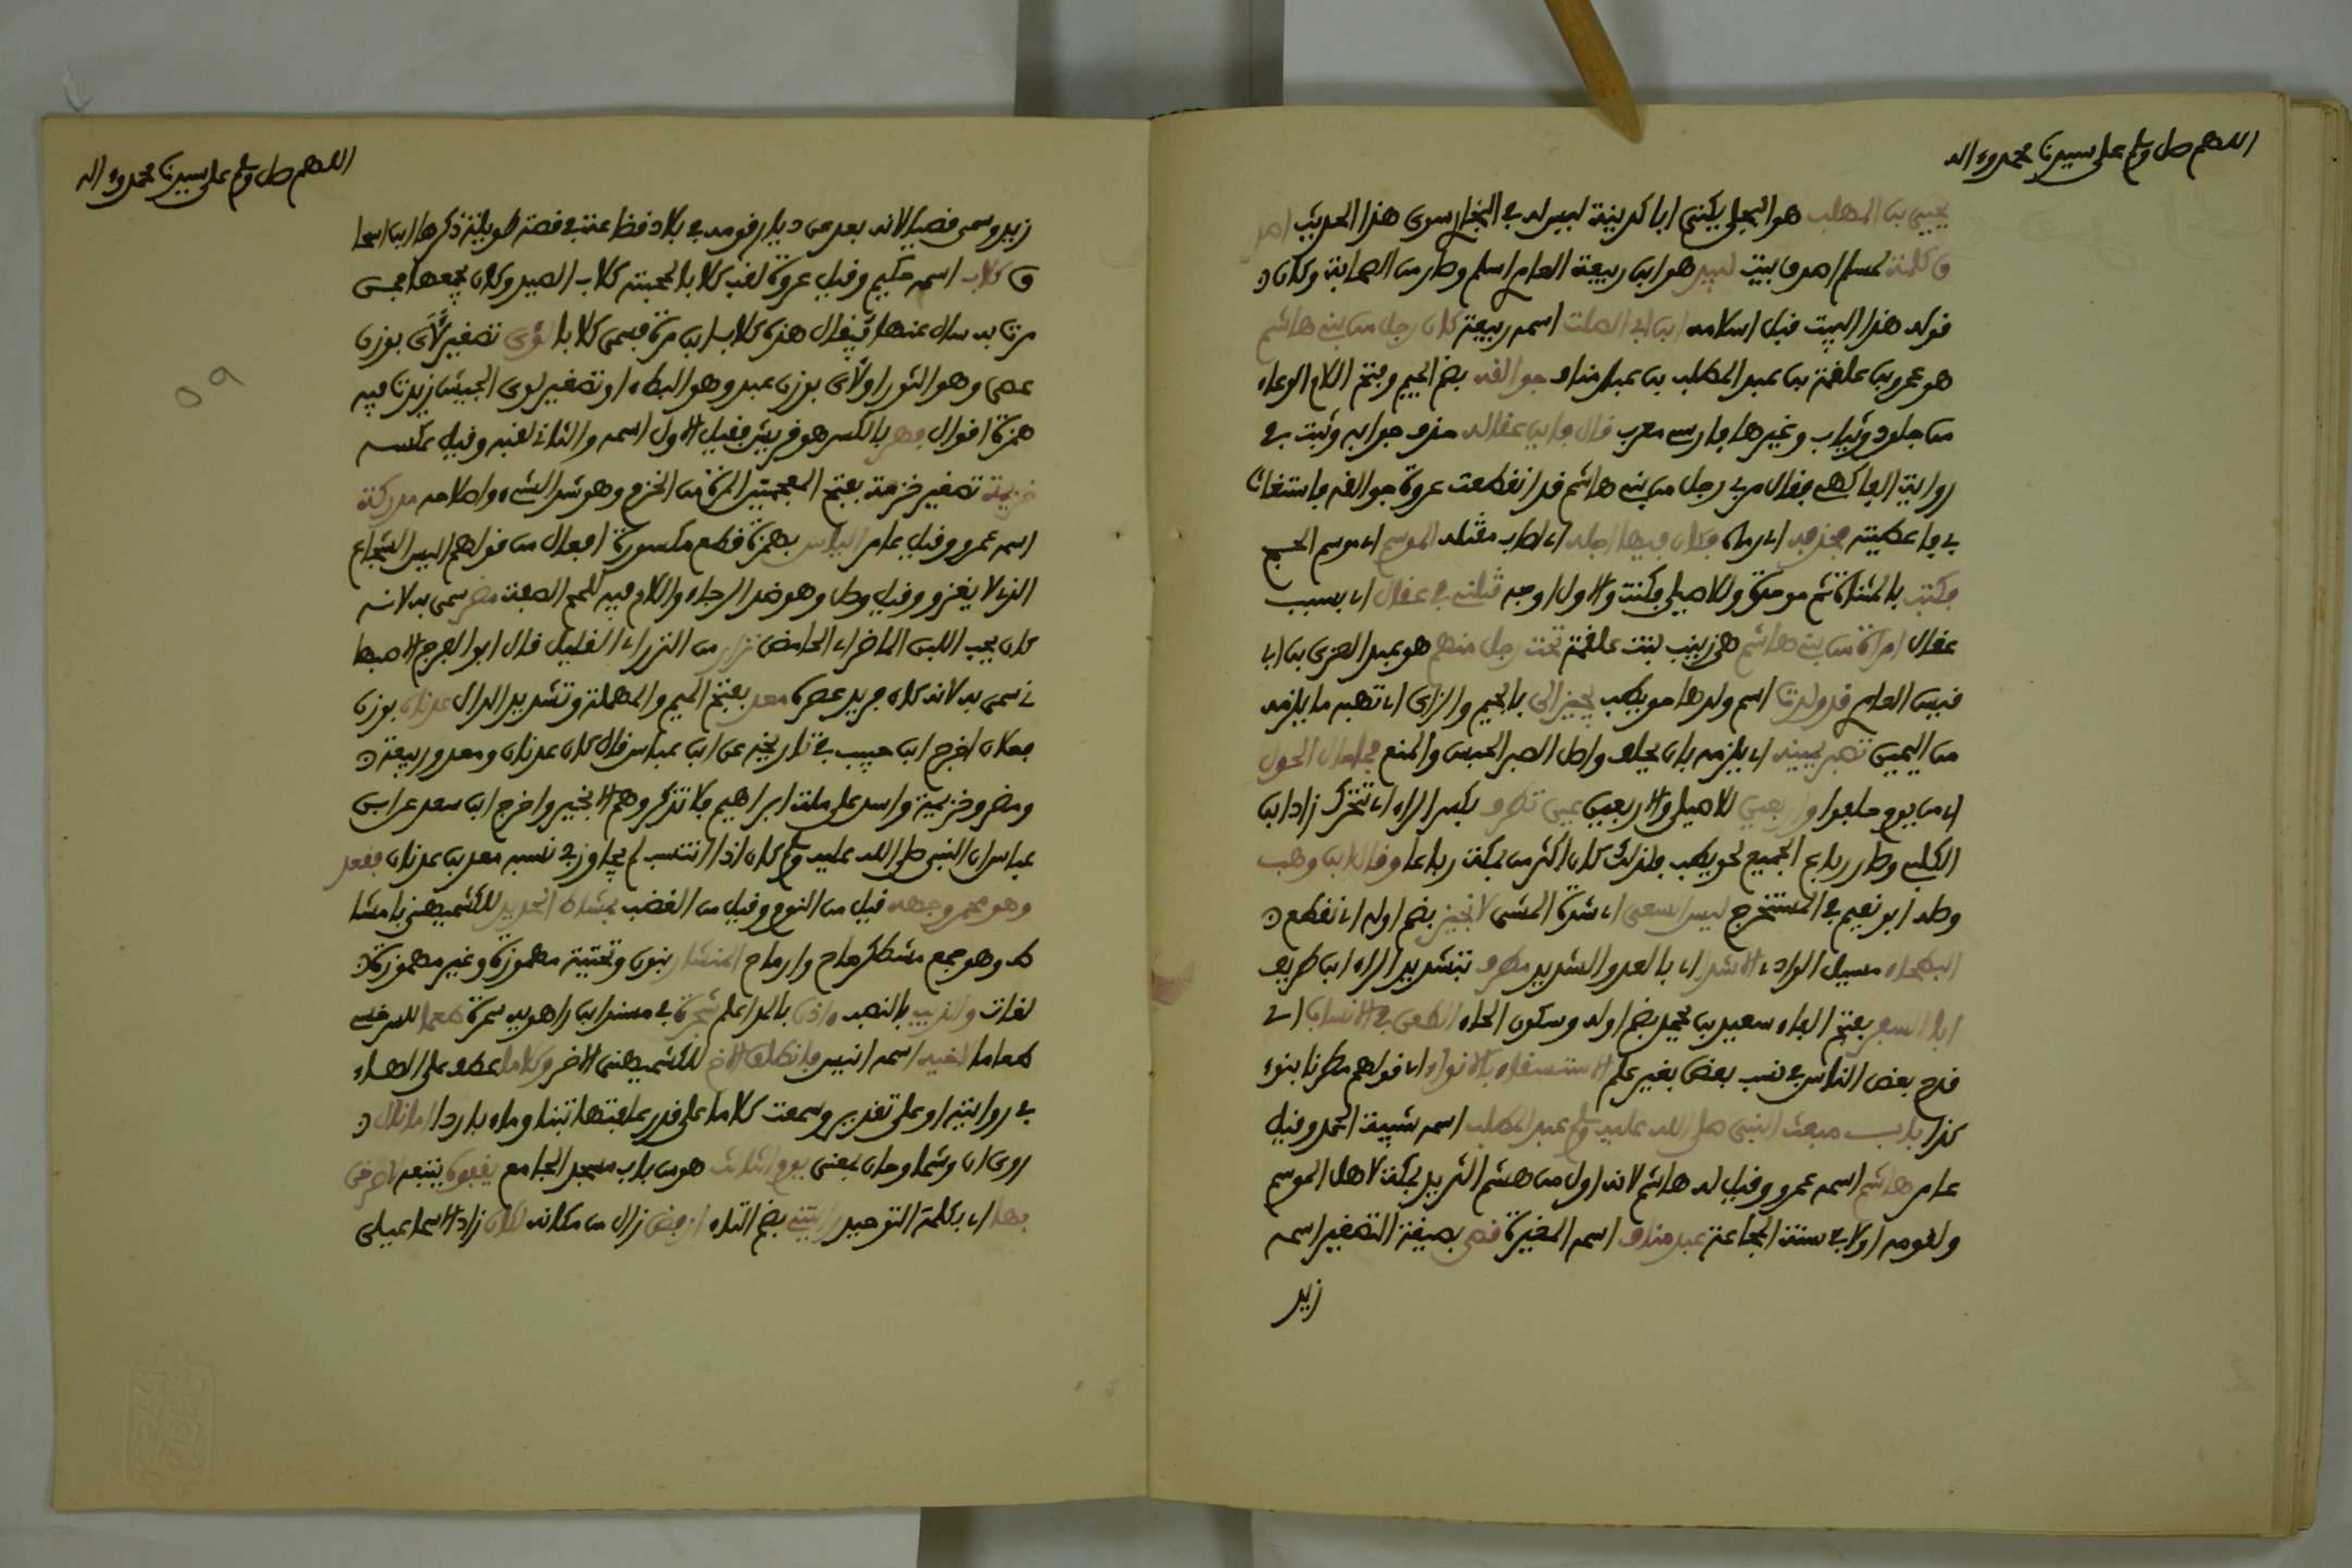 اللهم صل وسلم على سيدنا محمد وءاله
يحيى بن المهلب هو البجلي يكنى ابا كدينة ليس له في البخاري سوى هذا الحديث اصد
ق كلمة لمسلم اصدق بيت لبيد هو ابن ربيعة العامري اسلم وصار من الصحابة وكان
قوله هذا البيت قبل اسلامه ابن ابي الصلت اسمه ربيعة كان رجل من بني هاشم
هو عمرو بن علقمة بن عبد المطلب بن عبد مناف جوالقه بضم الجيم وفتح اللام الوعاء
من جلود وثياب وغيرها فارسي معرب قال فاين عقاله حذف جوابه وثبت في
رواية الفاكهي فقال مر بي رجل من بني هاشم قد انقطعت عروة جوالقه فاستغاث
بي فاعطيته فحذفه اي رماه فكان فيها اجله اي اصاب مقتله الموسم اي موسم الحج
فكتب بالمثناة ثم موحدة وللاصيلي فكنت والاول اوجه قتلني في عقال اي بسبب
عقال امراة من بني هاشم هي زينب بنت علقمة تحت رجل منهم هو عبد العزى بن ابي
قيس العامري قد ولدت اسم ولدها حويطب تجيز ابني بالجيم والزاي اي تهبه ما يلزمه
من اليمين تصبر يمينه اي يلزمه بان يحلف واصل الصبر الحبس والمنع فما حال الحول
اي من يوم حلفوا واربعين للاصيلي والاربعين عين تطرف بكسر الراء اي تتحرك زاد ابن
الكلبي وصار رباع الجميع لحويطب فلذلك كان اكثر من بمكة رباعا وقال ابن وهب
وصله ابو نعيم في المستخرج ليس السعي اي شدة المشي لا نجيز بضم اوله اي نقطع
البطحاء مسيل الوادي الا شدا اي بالعدو الشديد مطرف بتشديد الراء ابن طريف
ابا السفر بفتح الفاء سعيد بن يحمد بضم اوله وسكون الحاء الطعن في الانساب اي
قدح بعض الناس في نسب بعض بغير علم الاستسقاء بالانواء اي قولهم مطرنا بنوء
كذا باب مبعث النبي صلى الله عليه وسلم عبد المطلب اسمه شيبة الحمد وقيل
عامر هاشم اسمه عمرو وقيل له هاشم لانه اول من هشم الثريد بمكة لاهل الموسم
ولقومه اولا في سنة المجاعة عبد مناف اسمه المغيرة قصي بصيغة التصغير اسمه
زيد
اللهم صل وسلم على سيدنا محمد وءاله
زيد وسمي قصيا لانه بعد عن ديار قومه في بلاد قضاعة في قصة طويلة ذكرها ابن اسحا
ق كلاب اسمه حكيم وقيل عروة لقب كلابا لمحبته كلاب الصيد وكان يجمعها فمن
مرت به سال عنها فيقال هذه كلاب ابن مرة فسمي كلابا لؤي تصغير لأى بوزن
عصى وهو الثور او لأي بوزن عبد وهو البطء او تصغير لوى الجيش زيدت فيه
همزة اقوال فهر بالكسر هو قريش فقيل الاول اسمه والثاني لقبه وقيل عكسه
خزيمة تصغير خزمة بفتح المعجمتين المرة من الخزم وهو شد الشيء واصلاحه مدركة
اسمه عمرو وقيل عامر الياس بهمزة قطع مكسورة افعال من قولهم اليس الشجاع
الذي لا يفر وقيل وصل وهو ضد الرجاء واللام فيه للمح الصفة مضر سمي به لانه
كان يحب اللبن الماضر اي الحامض نزار من النزر اي القليل قال ابو الفرج الاصبها
ني سمي به لانه كان فريد عصره معد بفتح الميم والمهملة وتشديد الدال عدنان بوزن
فعلان اخرج ابن حبيب في تاريخه عن ابن عباس قال كان عدنان ومعد وربيعة
ومضر وخزيمة واسد على ملة ابراهيم فلا تذكروهم الا بخير واخرج ابن سعد عن ابن
عباس ان النبي صلى الله عليه وسلم كان اذا انتسب لم يجاوز في نسبه معد بن عدنان فقعد
وهو محمر وجهه قيل من النوم وقيل من الغضب بمشاط الحديد للكشميهني بامشا
ط وهو جمع مشط كرماح وارماح المنشار بنون وتحتية مهموزة وغير مهموزة
لغات والذيب بالنصب اذن بالمد اعلم شجرة في مسند ابن راهويه سمرة للسرخسي
لاخيه اسمه انيس فانطلق الاخ للكشميهني الاخر وكلاما عطف على الهاء
في رايته او على تقدير وسمعت كلاما على قدر علفتها تبنا وماء باردا اما نال
روى ان وشما وحان بمعنى يوم الثالث هو من باب مسجد الجامع يقفوه يتبعه لاصرخن
بها اي بكلمة التوحيد رايتني بضم التاء ارفض زال من مكانه لكان زاد الاسماعيلي